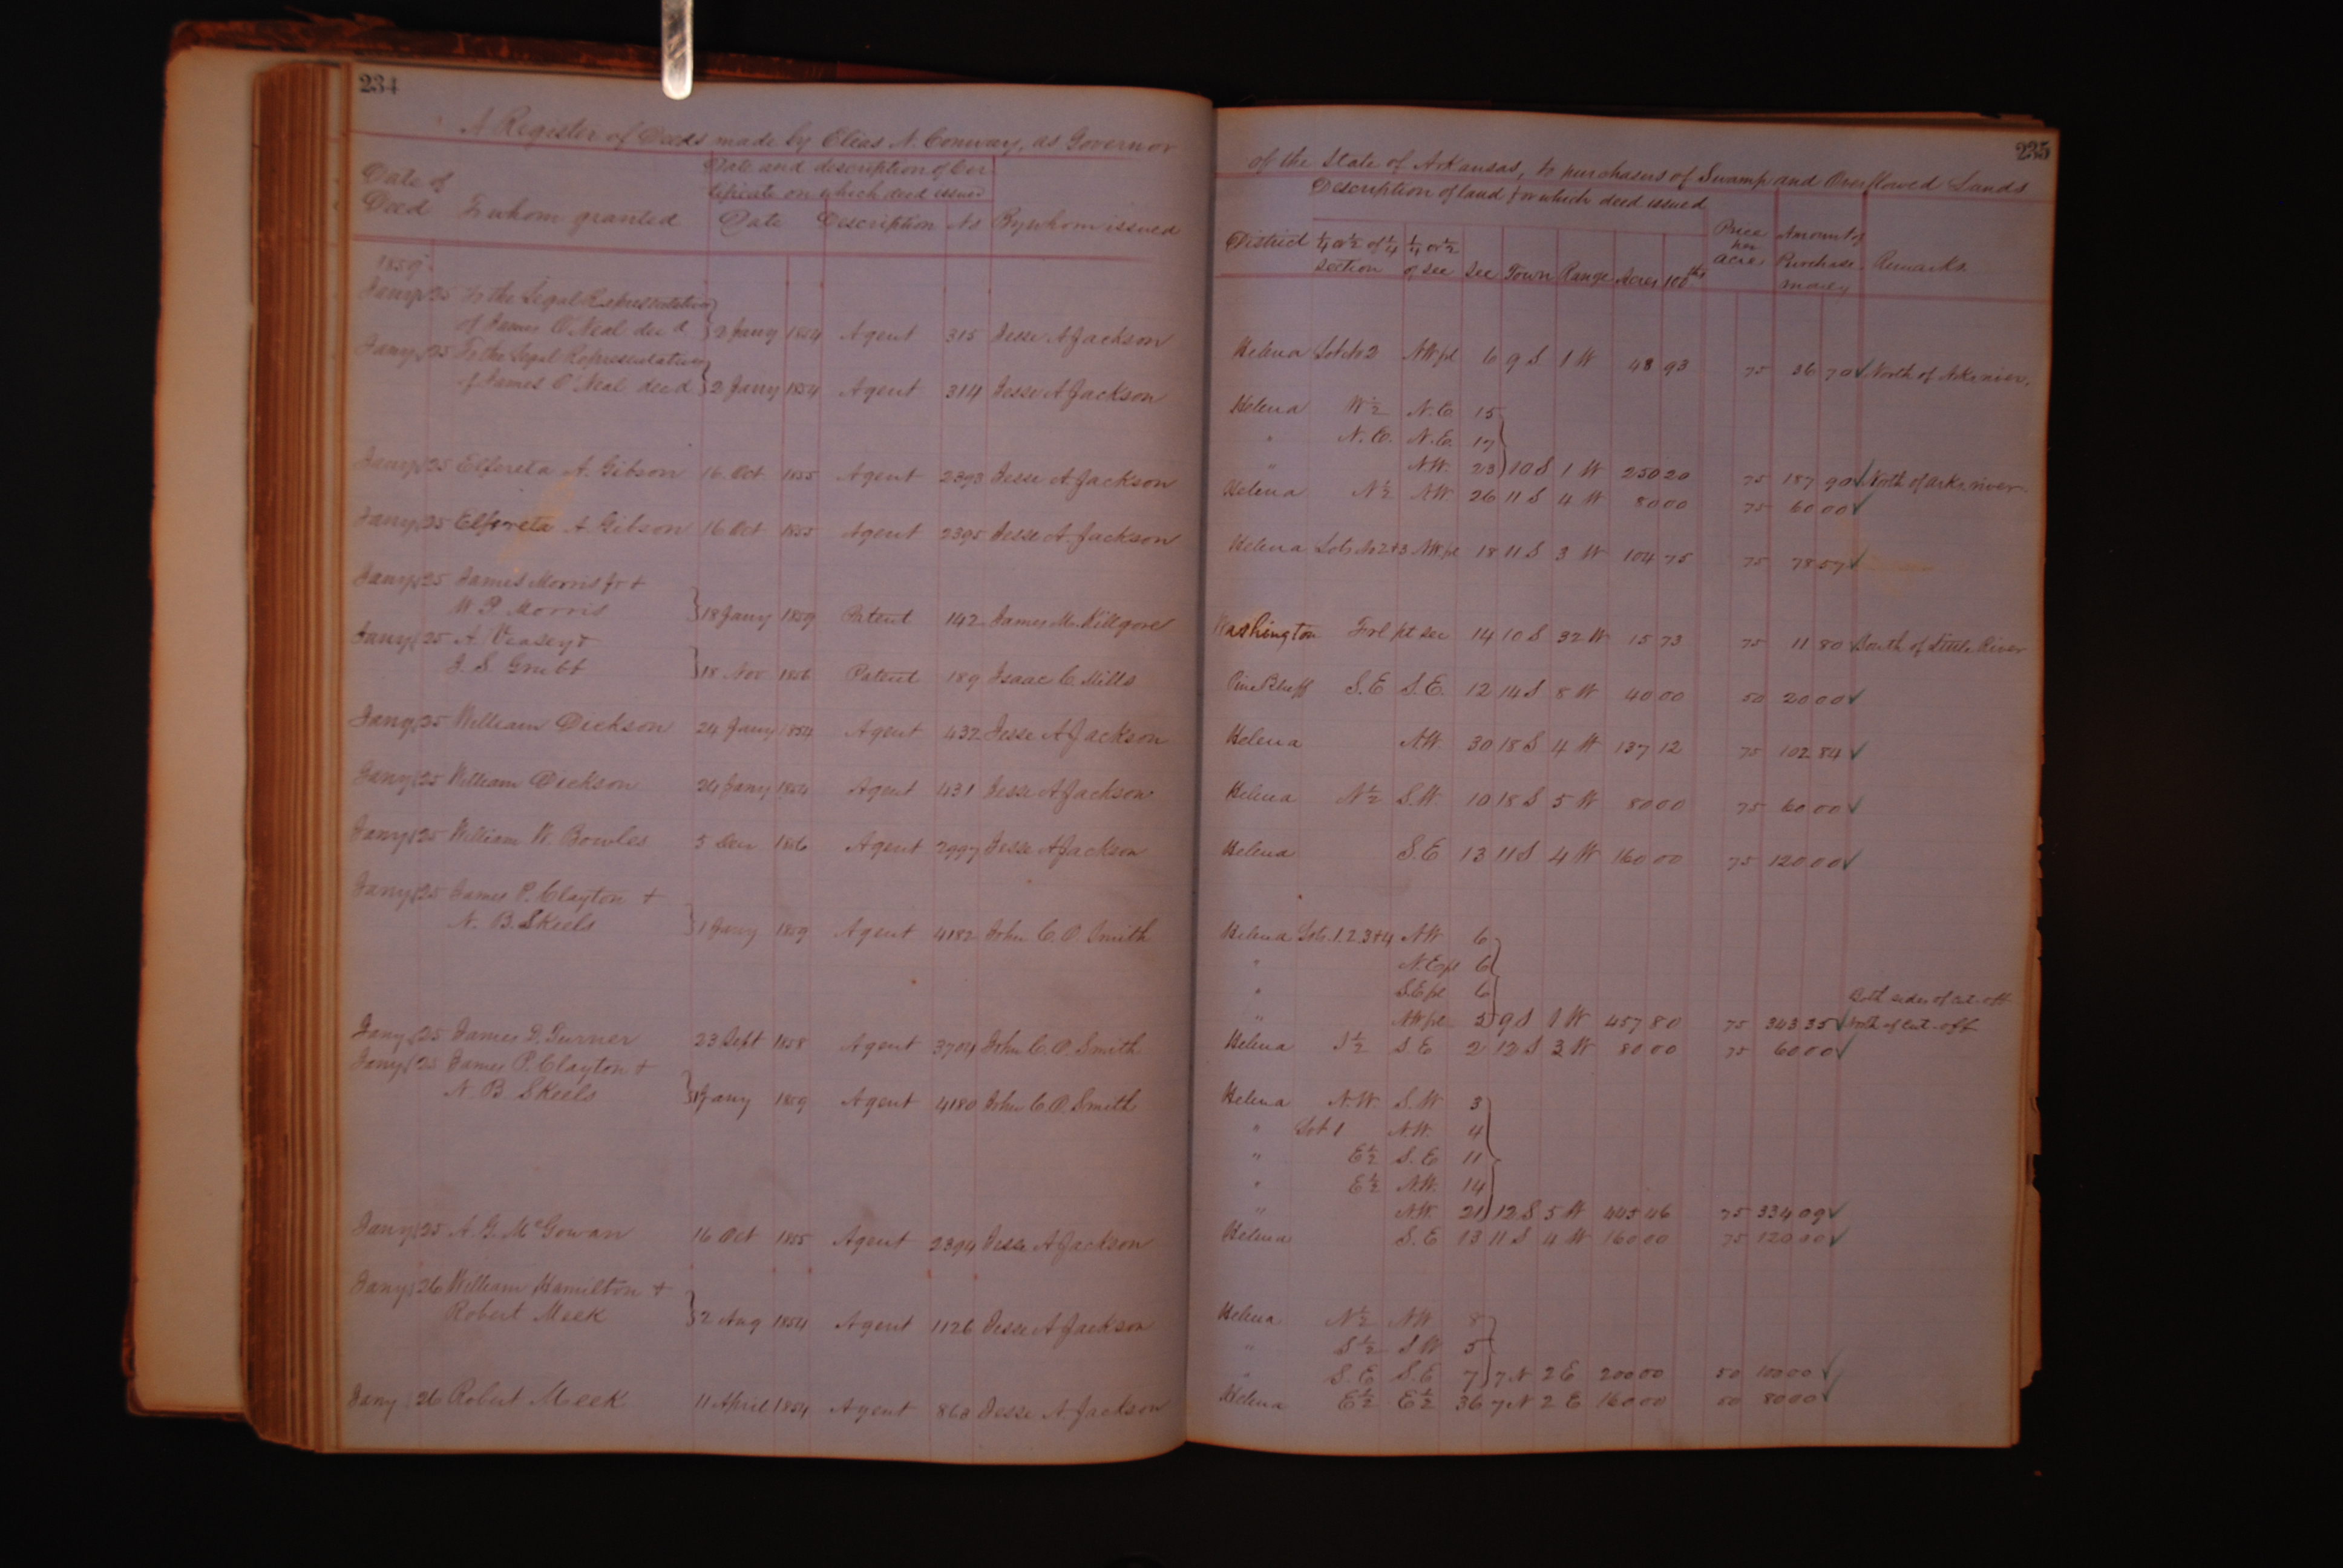 234
A Register of Deeds made by Elias N. Conway, as Governor
Date of Deed To whom granted Date and description of Certificate on which deed issued
Date Description No By whom issued
1859
Jany 25 To the Legal Representatives
of James O'Neal decd } 2 Jany 1854 Agent 315 Jesse A Jackson
Jany 25 To the Legal Representatives
of James O'Neal decd } 2 Jany 1854 Agent 314 Jesse A Jackson
Jany 25 Elfereta A. Gibson 16 Oct 1855 Agent 2393 Jesse A. Jackson
Jany 25 Elfereta A Gibson 16 Oct 1855 Agent 2395 Jesse A. Jackson
Jany 25 James Morris Jr +
W. P. Morris } 18 Jany 1859 Patent 142 James M. Killgore
Jany 25 A. Veasey +
J. S. Grubt } 18 Nov 1856 Patent 189 Isaac C. Mills
Jany 25 William Dickson 24 Jany 1854 Agent 432 Jesse A Jackson
Jany 25 William Dickson 24 Jany 1854 Agent 431 Jesse A Jackson
Jany 25 William W. Bowles 5 Dec 1856 Agent 2997 Jesse A Jackson
Jany 25 James P. Clayton +
N. B. Skeels } 1 Jany 1859 Agent 4182 John C. O. Smith
Jany 25 James D. Turner 23 Sept 1858 Agent 3704 John C. O. Smith
Jany 25 James P. Clayton +
N. B. Skeels } 1 Jany 1859 Agent 4180 John C. O. Smith
Jany 25 A. G. McGowan 16 Oct 1855 Agent 2394 Jesse A Jackson
Jany 26 William Hamilton +
Robert Meek } 2 Aug 1854 Agent 1126 Jesse A Jackson
Jany 26 Robert Meek 11 April 1854 Agent 863 Jesse A. Jackson
235
of the State of Arkansas, to purchasers of Swamp and Overflowed Lands
Description of land for which deed issued
District ¼ or ½ of ¼ section ¼ or ½ of sec Sec Town Range Acres 100ths Price per acre Amount of Purchase money Remarks
Helena Lot No 2 NW frl 6 9 S 1 W 48 93 75 36 70 ✓ North of Arks river.
Helena W½ N.E. 15
" N.E. N.E. 17
" N.W. 23 } 10 S 1 W 250 20 75 187 90 ✓ North of Arks river
Helena N½ NW 26 11 S 4 W 80 00 75 60 00 ✓
Helena Lots No 2+3 NW frl 18 11 S 3 W 104 75 75 78 57 ✓
Washington Frl pt sec 14 10 S 32 W 15 73 75 11 80 South of Little River
Pine Bluff S.E S.E. 12 14 S 8 W 40 00 50 20 00 ✓
Helena N.W. 30 18 S 4 W 137 12 75 102 84 ✓
Helena N½ S.W. 10 18 S 5 W 80 00 75 60 00 ✓
Helena S.E 13 11 S 4 W 160 00 75 120 00 ✓
Helena Lots 1.2.3+4 NW 6
" N.E frl 6
" S.E frl 6 Both sides of cut-off
" NW frl 5 } 9 S 1 W 457 80 75 343 35 ✓ North of cut-off
Helena S½ S E 2 12 S 3 W 80 00 75 60 00 ✓
Helena N.W. S.W 3
" Lot 1 N.W. 4
" E½ S.E 11
" E½ N.W. 14
" N.W. 21 } 12 S 5 W 445 46 75 334 09 ✓
Helena S.E 13 11 S 4 W 160 00 75 120 00 ✓
Helena N½ NW 8
" S½ S W 5
" S.E S.E 7 } 7 N 2 E 200 00 50 100 00 ✓
Helena E½ E½ 36 7 N 2 E 160 00 50 80 00 ✓